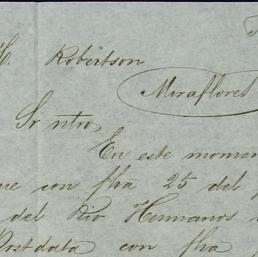 Robertson
Miraflores
Sr ntro
En este momen
ue con fha 25 del
del Rio Hermanos
Postdata con fha